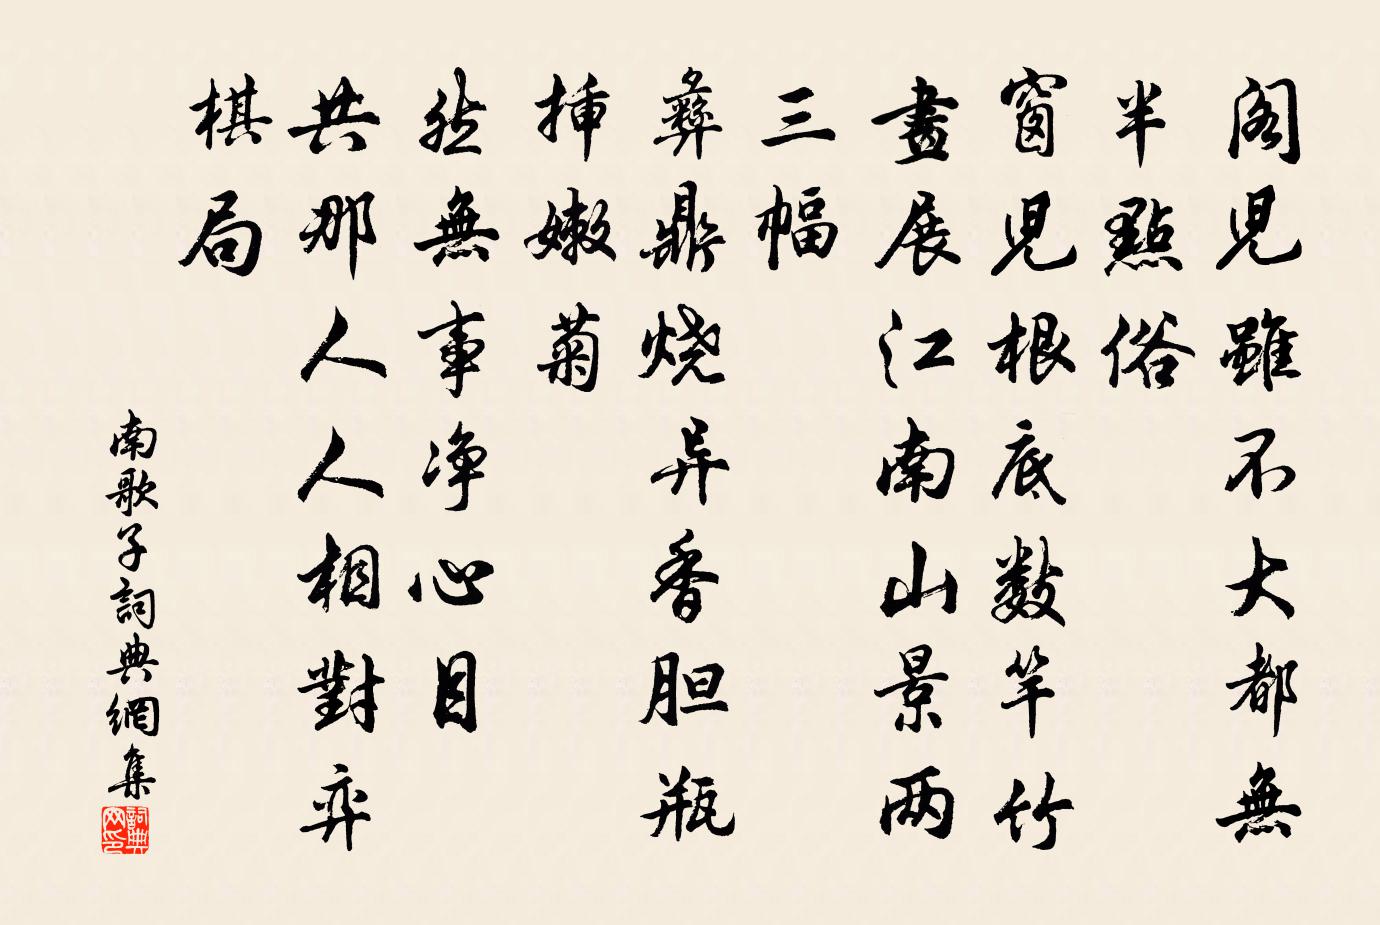 阁兒雖不大都無
半點俗
窗兒根底數竿竹
畫展江南山景两
三幅
彝鼎烧异香胆瓶
插嫩菊
然無事净心目
共那人人相對弈
棋局
南歌子詞典網集
詞典网印